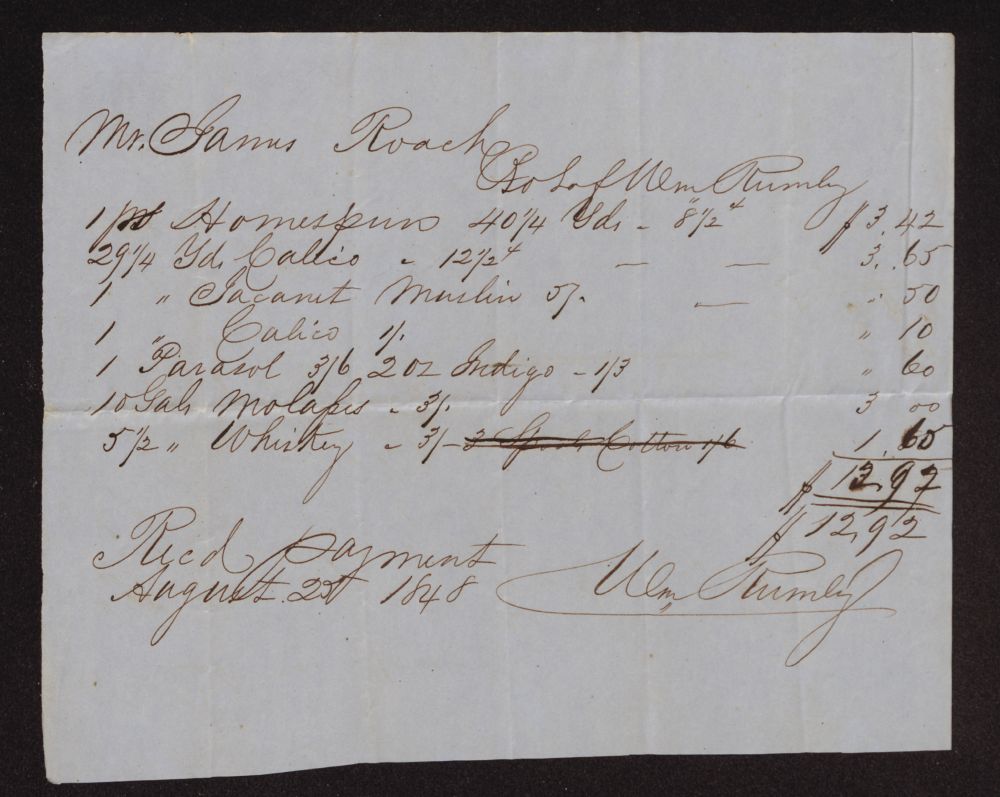 Mr. James Roach
Bot of Wm Rumley
1 ps Homespun 40 1/4 Yds - 8 1/2 $ 3.42
29 1/4 Yds Calico - 12 1/2 — — 3.65
1 " Jaconet Muslin 5/. — " 50
1 " Calico 1/. " 10
1 Parasol 3/6 2 oz Indigo - 1/3 " 60
10 Gals Molasses - 3/. 3 00
5 1/2 " Whiskey - 3/- 3 Spools Cotton 1/6 1.65
$ 12,92
$ 12,92
Recd payment
August 23d 1848 Wm Rumley